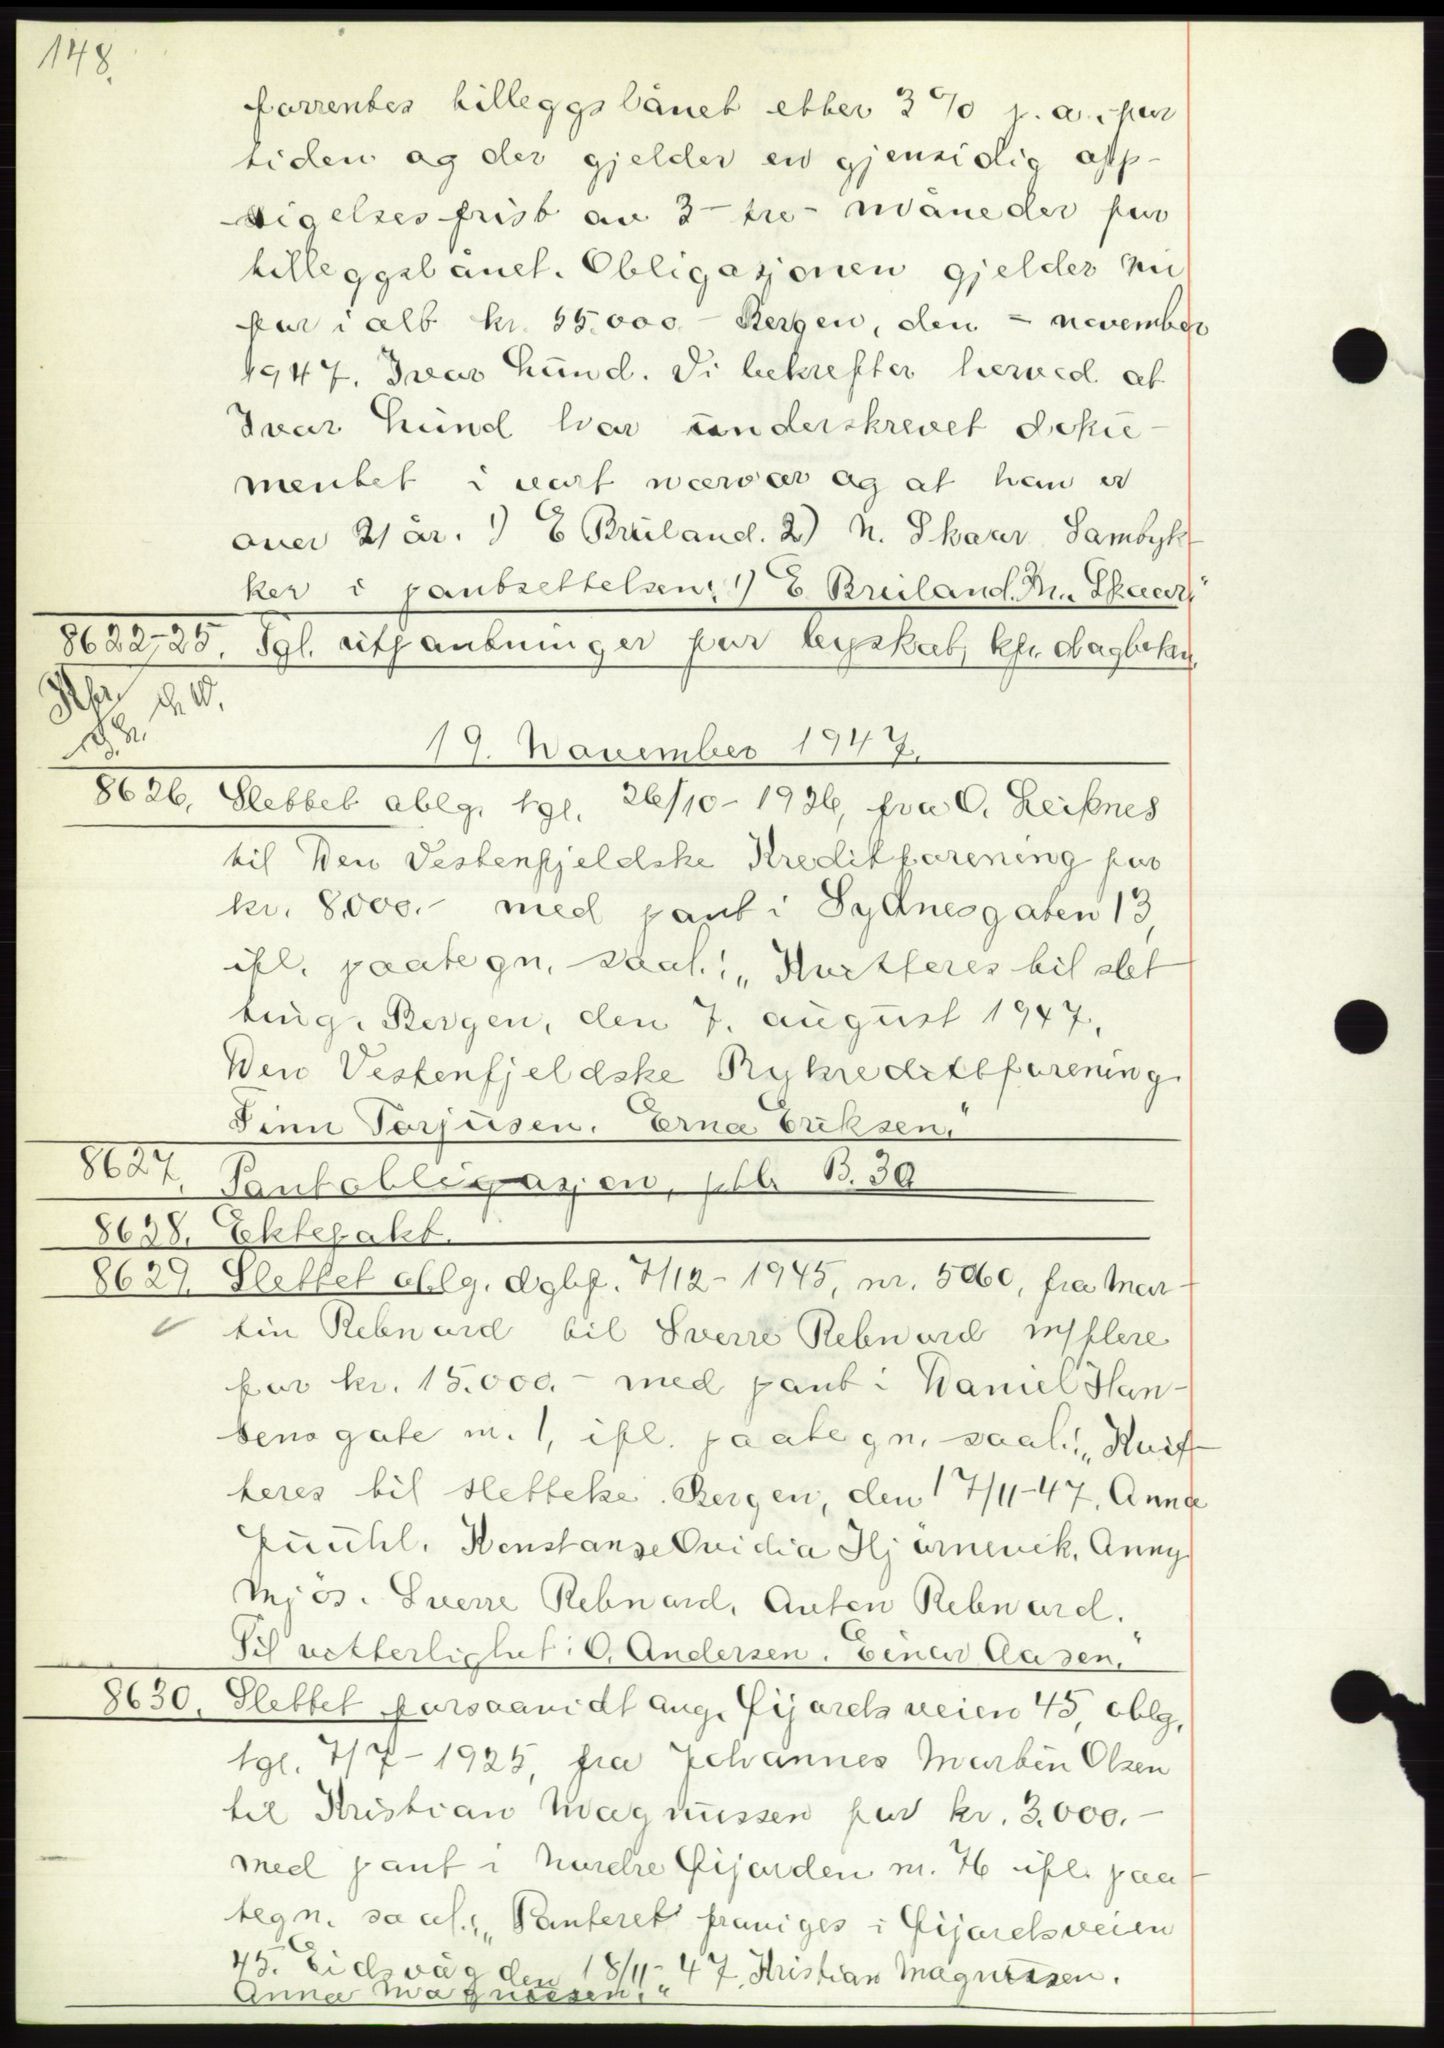 148.
forrentes tilleggslånet etter 3 % p. a. for
tiden og der gjelder en gjensidig opp-
sigelsesfrist av 3 - tre - måneder for
tilleggslånet. Obligasjonen gjelder nu
for ialt kr. 55.000.- Bergen, den - november
1947. Ivar Lund. Vi bekrefter herved at
Ivar Lund har underskrevet doku-
mentet i vart nærvær og at han er
over 21 år. 1) E Bruland. 2) N. Skaar. Samtyk-
ker i pantsettelsen: 1) E. Bruland. N. Skaar."
8622-25. Tgl. utpantninger for byskat, kfr. dagboken.
19. November 1947.
8626. Slettet oblg. tgl. 26/10-1936, fra O. Leiknes
til Den Vestenfjeldske Kreditforening for
kr. 8.000.- med pant i Sydnesgaten 13,
ifl. paategn. saal.: "Kvitteres til slet
ting. Bergen, den 7. august 1947.
Den Vestenfjeldske Bykredittforening
Finn Torjusen. Erna Eriksen."
8627. Pantobligasjon, ptb. B. 39
8628. Ektepakt.
8629. Slettet oblg. dgbf. 7/12-1945, nr. 5060, fra Mar-
tin Rebnord til Sverre Rebnord m/flere
for kr. 15.000.- med pant i Daniel Han-
sens gate nr. 1, ifl. paategn. saal.: "Kvit-
teres til slettelse. Bergen, den 17/11-47. Anna
Juuhl. Konstanse Ovidia Hjørnevik. Anny
Mjøs. Sverre Rebnord. Anton Rebnord.
Til vitterlighet: O. Andersen. Einar Aasen."
8630. Slettet forsaavidt ang. Gijordsveien 45, oblg.
tgl. 7/7-1925, fra Johannes Martin Olsen
til Kristian Magnussen for kr. 3.000.-
med pant i Nordre Gijorden nr. 76 ifl. paa-
tegn. saal.: "Panteret fraviges i Gijordsveien
45. Eidsvåg den 18/11-47. Kristian Magnussen.
Anna Magnussen."